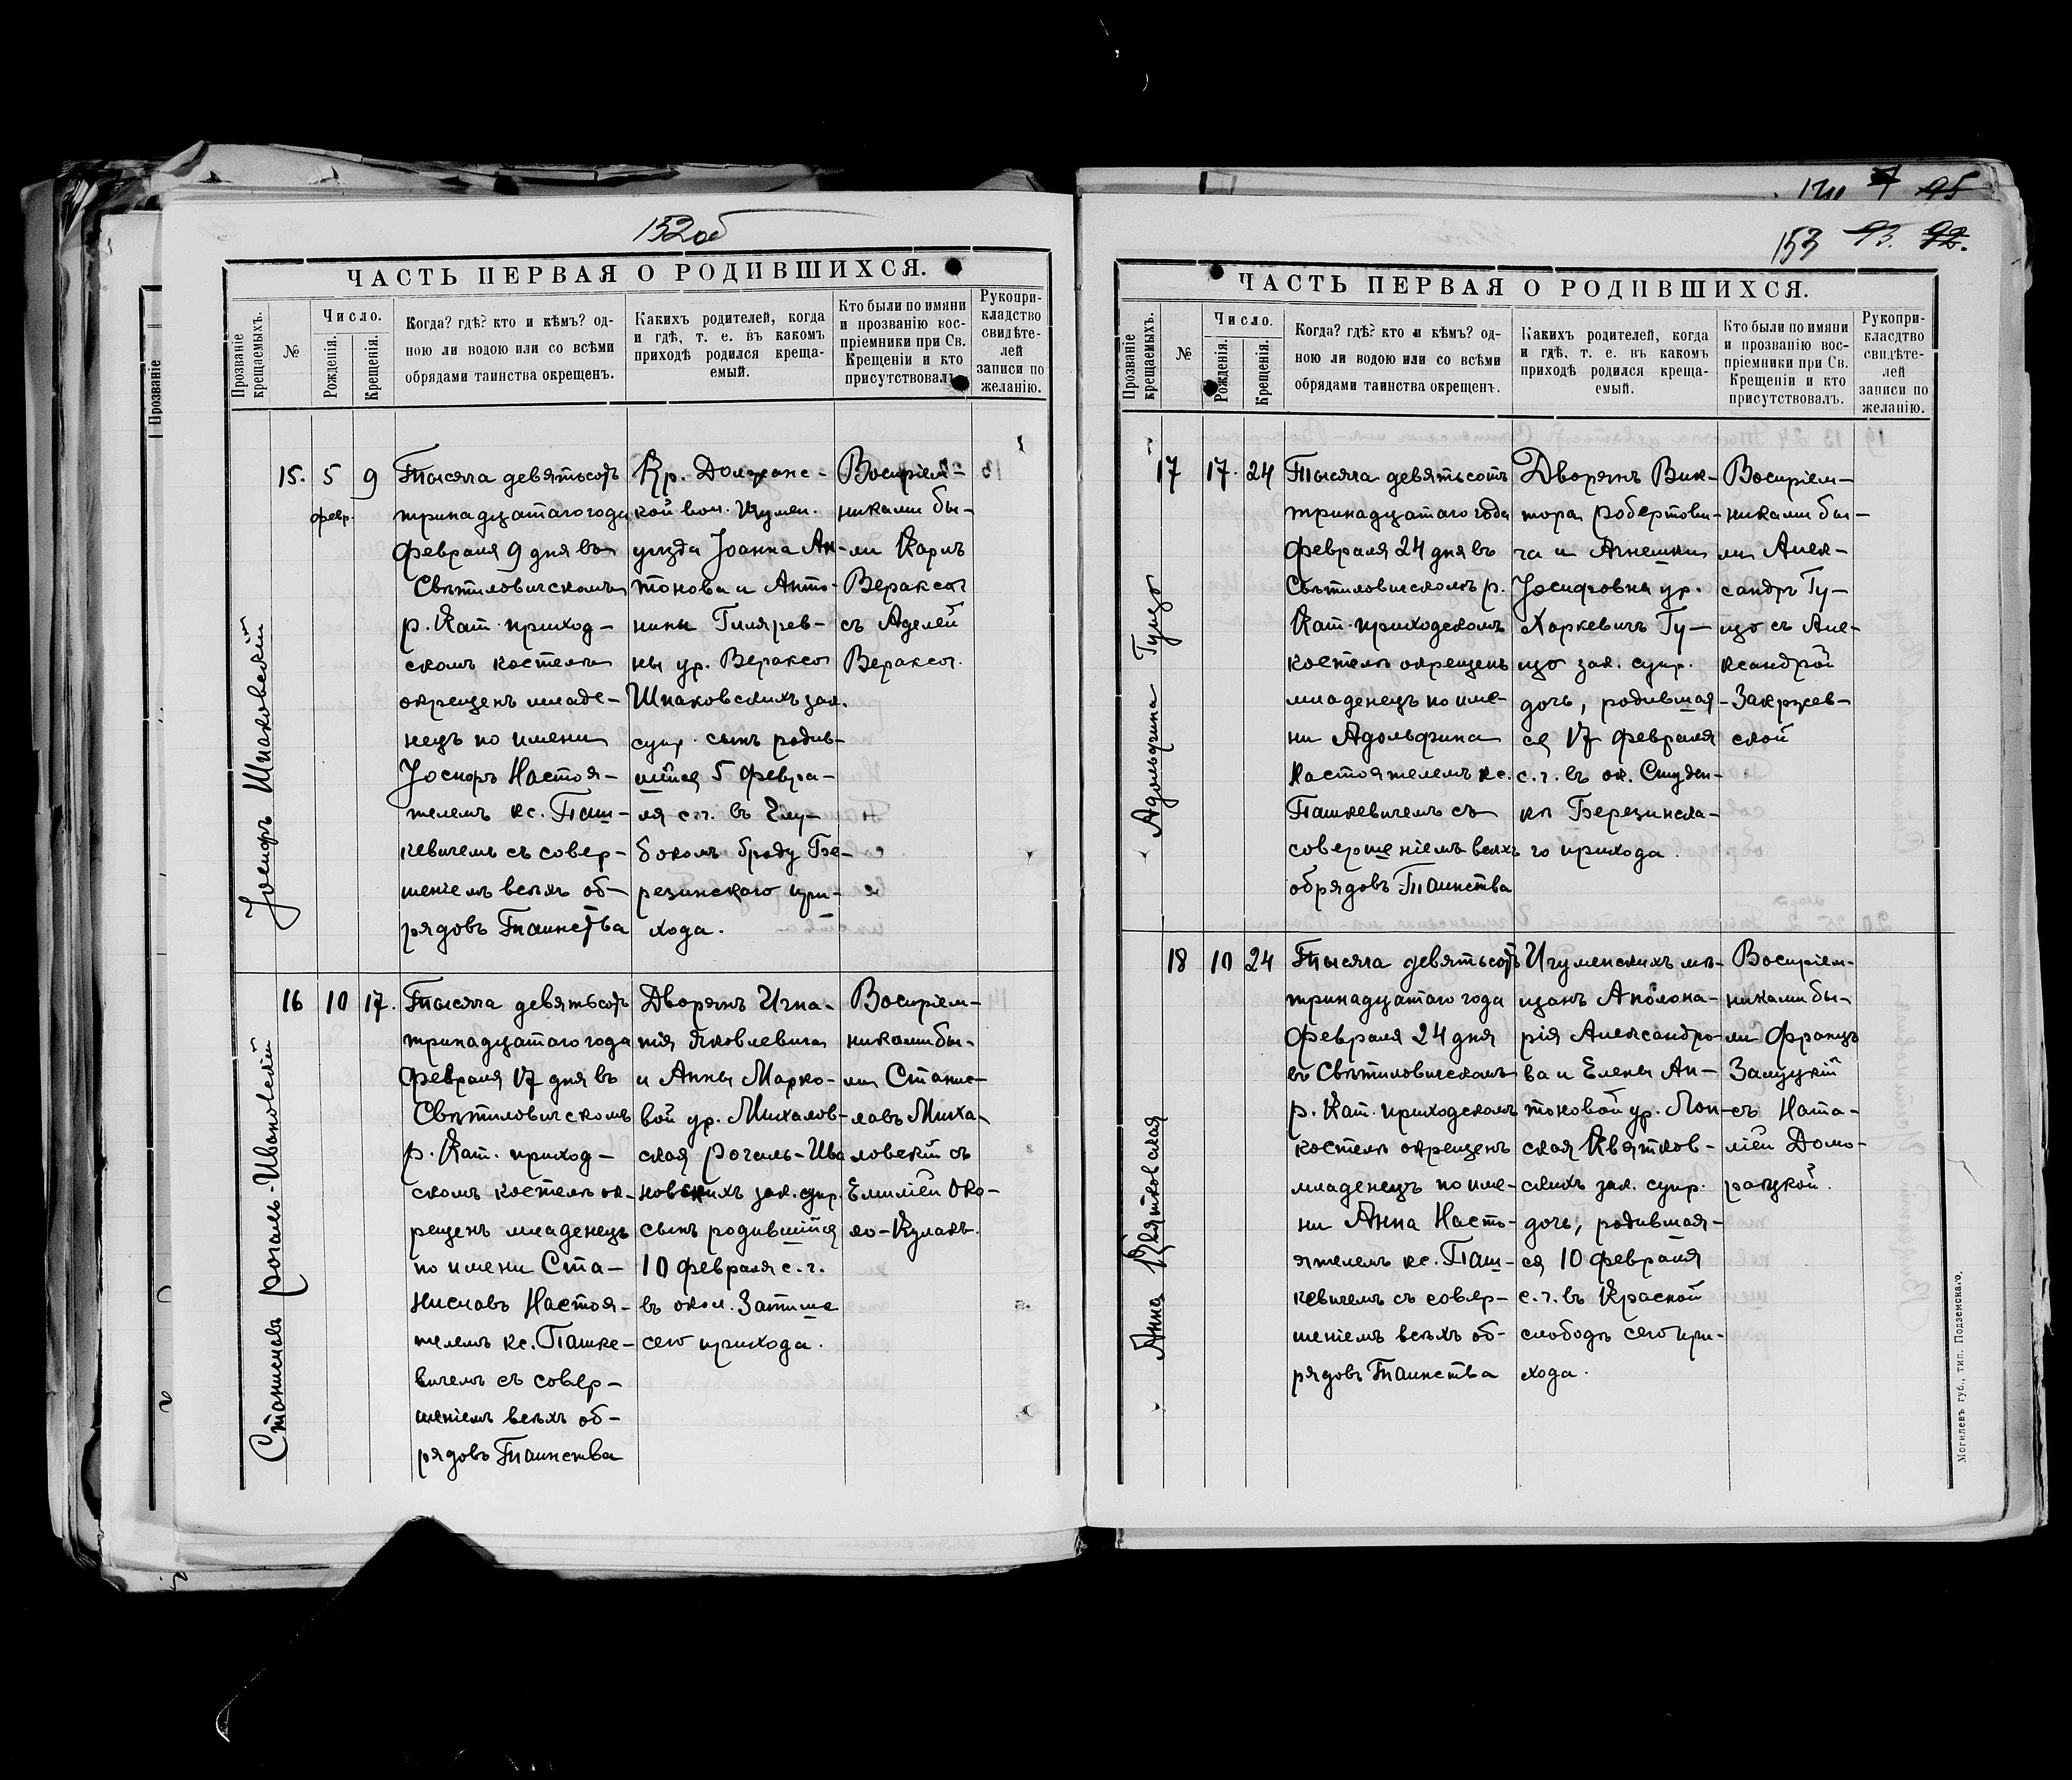 152об
ЧАСТЬ ПЕРВАЯ О РОДИВШИХСЯ.
Прозваніе крещаемыхъ.
№
Число.
Рожденія.
Крещенія.
Когда? гдѣ? кто и кѣмъ? од-
ною ли водою или со всѣми
обрядами таинства окрещенъ.
Какихъ родителей, когда
и гдѣ, т. е. въ какомъ
приходѣ родился креща-
емый.
Кто были по имяни
и прозванію вос-
пріемники при Св.
Крещеніи и кто
присутствовалъ.
Рукопри-
кладство
свидѣте-
лей
записи по
желанію.
Іосифъ Шпаковскій
15. 5 февр. 9
Тысяча девятьсотъ
тринадцатаго года
февраля 9 дня въ
Свѣтиловичскомъ
р. Кат. приход-
скомъ костелѣ
окрещенъ младе-
нецъ по имени
Іосифъ Настоя-
телемъ кс. Паш-
кевичемъ съ совер-
шеніемъ всѣхъ об-
рядовъ Таинства
Кр. Должанс-
кой вол. Игумен.
уѣзда Іоанна Ан-
тонова и Анто-
нины Гиляров-
ны ур. Веракса
Шпаковскихъ зак.
супр. сынъ родив-
шійся 5 февра-
ля с.г. въ Глу-
бокомъ броду Бе-
резинскаго при-
хода.
Воспріем-
никами бы-
ли Карлъ
Веракса
съ Аделей
Веракса.
Станиславъ Рогаль-Ивановскій
16 10 17.
Тысяча девятьсотъ
тринадцатаго года
февраля 17 дня въ
Свѣтиловичскомъ
р. Кат. приход-
скомъ костелѣ ок-
рещенъ младенецъ
по имени Ста-
ниславъ Настоя-
телемъ кс. Пашке-
вичемъ съ совер-
шеніемъ всѣхъ об-
рядовъ Таинства
Дворянъ Игна-
тія Яковлевича
и Анны Марко-
вой ур. Михалов-
ская Рогаль-Ива
новскихъ зак. супр.
сынъ родившійся
10 февраля с.г.
въ окол. Затише
сего прихода.
Воспріем-
никами бы-
ли Станис-
лавъ Миха-
ловскій съ
Емиліей Око-
ло-Кулакъ.
153 93. 92.
ЧАСТЬ ПЕРВАЯ О РОДИВШИХСЯ.
Прозваніе крещаемыхъ.
№
Число.
Рожденія.
Крещенія.
Когда? гдѣ? кто и кѣмъ? од-
ною ли водою или со всѣми
обрядами таинства окрещенъ.
Какихъ родителей, когда
и гдѣ, т. е. въ какомъ
приходѣ родился креща-
емый.
Кто были по имяни
и прозванію вос-
пріемники при Св.
Крещеніи и кто
присутствовалъ.
Рукопри-
класдтво
свидѣте-
лей
записи по
желанію.
Адольфина Гуцо
17 17. 24
Тысяча девятьсотъ
тринадцатаго года
февраля 24 дня въ
Свѣтиловичскомъ р.
Кат. приходскомъ
костелѣ окрещенъ
младенецъ по име-
ни Адольфина
Настоятелемъ кс.
Пашкевичемъ съ
совершеніемъ всѣхъ
обрядовъ Таинства
Дворянъ Вик-
тора Робертови-
ча и Агнешки
Іосифовны ур.
Харкевичъ Гу-
цо зак. супр.
дочь, родившая-
ся 17 февраля
с.г. въ ок. Студен-
кѣ Березинска-
го прихода.
Воспріем-
никами бы-
ли Алек-
сандръ Гу-
цо съ Але-
ксандрой
Закржев-
ской
Анна Квятковская
18 10 24
Тысяча девятьсотъ
тринадцатаго года
февраля 24 дня
въ Свѣтиловичскомъ
р. Кат. приходскомъ
костелѣ окрещенъ
младенецъ по име-
ни Анна Насто-
ятелемъ кс. Паш-
кевичемъ съ совер-
шеніемъ всѣхъ об-
рядовъ Таинства
Игуменскихъ мѣ-
щанъ Аполона-
рія Александро-
ва и Елены Ан-
тоновой ур. Лоп-
ская Квятков-
скихъ зак. супр.
дочь, родившая-
ся 10 февраля
с.г. въ Красной
слободѣ сего при-
хода.
Воспріем-
никами бы-
ли Францъ
Залуцкій
съ Ната-
ліей Домо-
рацкой.
Могилевъ губ., тип. Подземскаго.